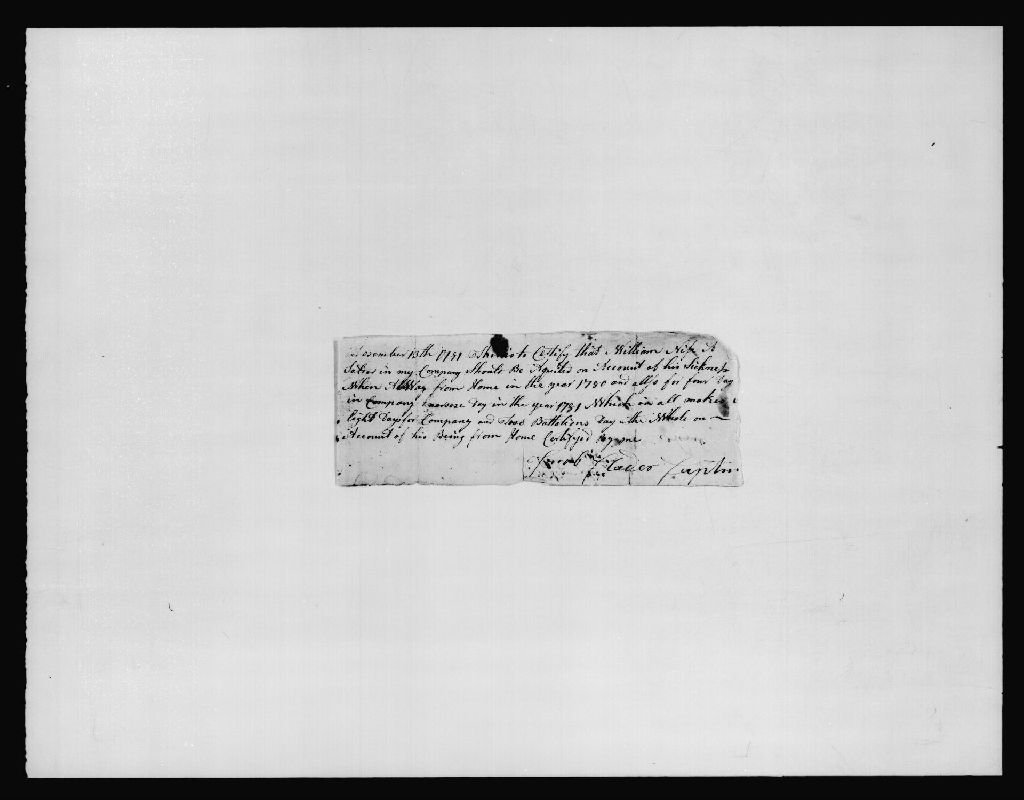 December 13th 1781 This is to Certify that William Nib A
in my Company Should Be Aquited on Account of his Sickness
When A Way from Home in the year 1780 and allso for four Day
in Company Day in the year 1781 Which in all makes
Eight Days for Company and two Battelions Day the Whole on
Account of his Being from Home Certifyd by me
Jacob Captn